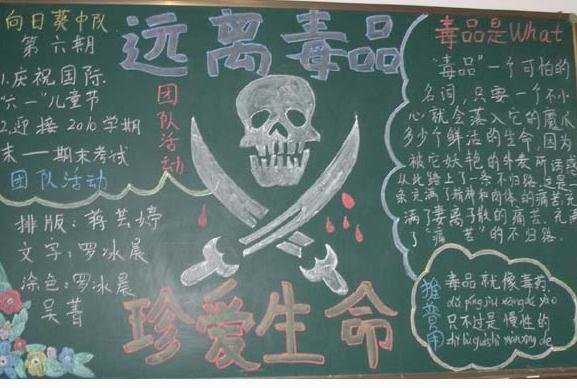 向日葵中队
第六期
1.庆祝国际
"六一"儿童节
2.迎接2010学期
末——期末考试
团队活动
远离毒品
团队活动
排版:蒋芸婷
文字:罗冰晨
涂色:罗冰晨
吴菁
珍爱生命
毒品是What
"毒品"一个可怕的
名词,只要一个不小
心就会落入它的魔爪
多少个鲜活的生命,因为
被它妖艳的外表所诱惑
从此踏上了一条不归路,这是一
条充满了精神和肉体的痛苦,充
满了妻离子散的痛苦,充满
了"痛苦"的不归路.
推普用
毒品就像毒药
dú pǐn jiù xiàng dú yào
只不过是慢性的
zhǐ bú guò shì màn xìng de